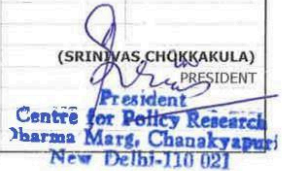 (SRINIVAS CHOKKAKULA)
PRESIDENT
President
Centre for Policy Research
Dharma Marg, Chanakyapuri
New Delhi-110 021